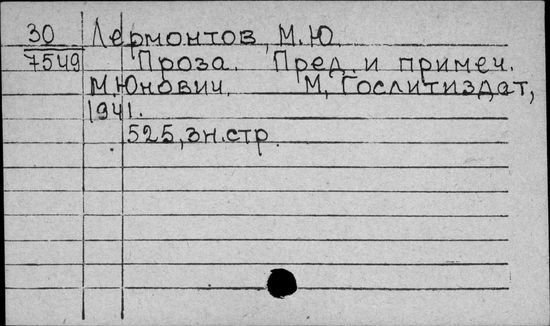 30 Лермонтов, М.Ю.
7549 Проза. Пред. и примеч.
М.Юнович. М, Гослитиздат,
1941.
525, зн.стр.